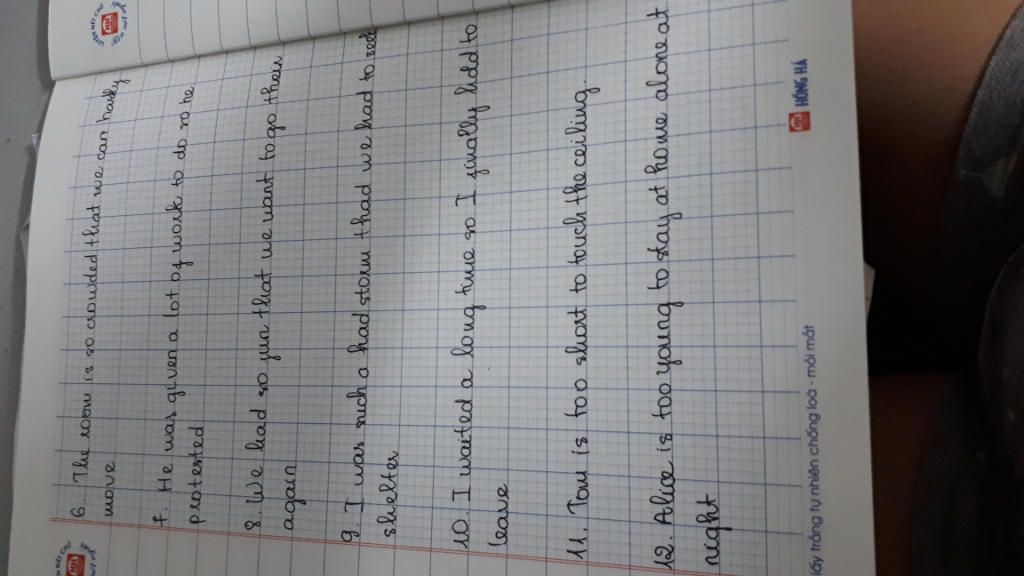 6. The room is so crowded that we can hardly
move
7. He was given a lot of work to do so he
protested
8. We had so fun that we want to go there
again
9. I was such a had storm thad we had to
shelter
10. I waited a long time so I finally hdd to
leave
11. Tom is too short to touch the ceiling.
12. Alice is too young to stay at home alone at
night
HỒNG HÀ
lấy trắng tự nhiên chống loá - mỏi mắt